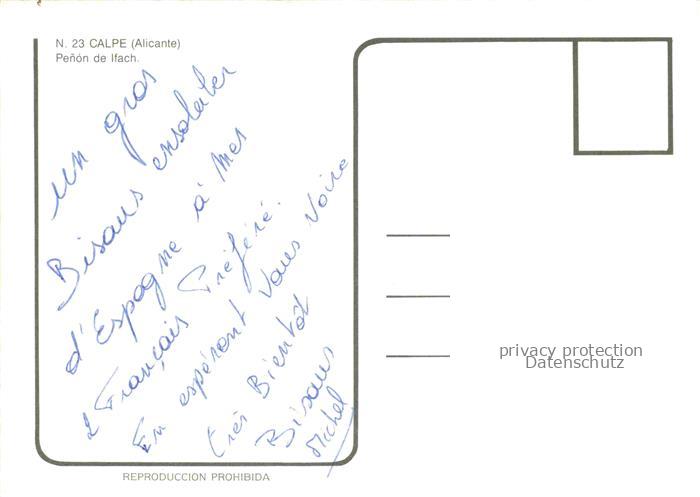 N. 23 CALPE (Alicante)
Peñón de Ifach.
un gros
Bisous ensoleiller
d'Espagne à mes
2 Français Préféré.
En espérant Vous Voire
très Bientot
Bisous
Michel
REPRODUCCION PROHIBIDA
privacy protection
Datenschutz